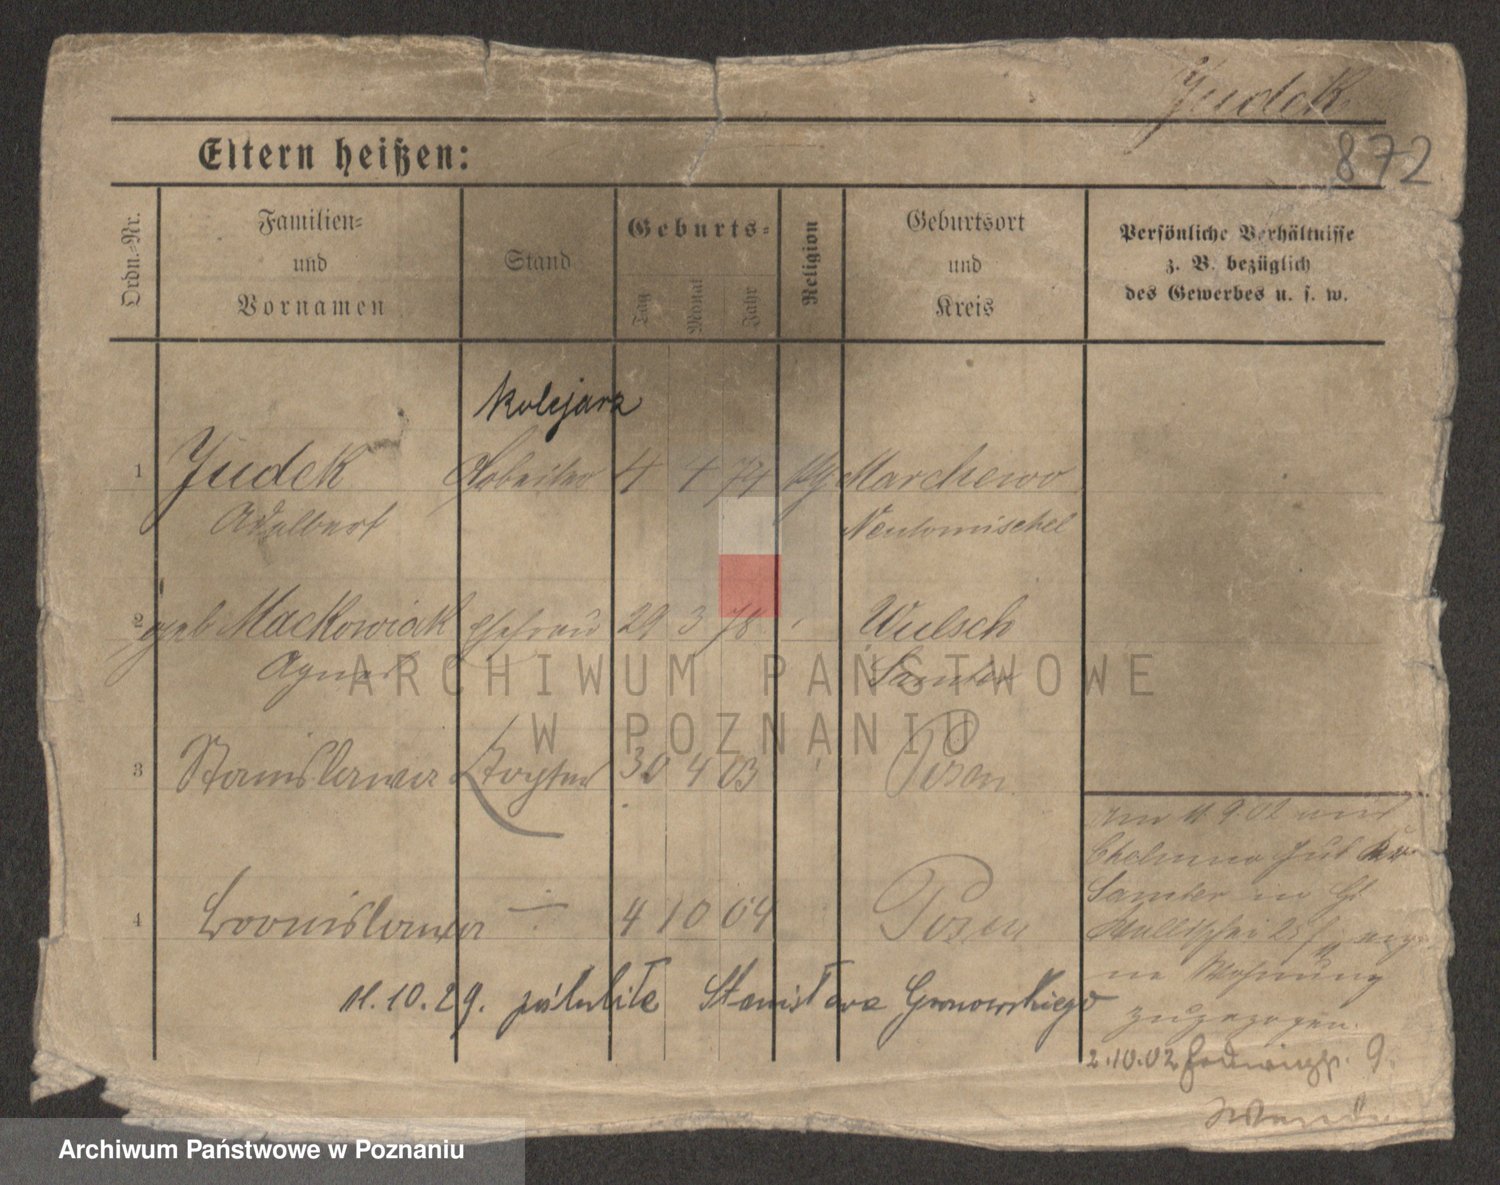 Judek
872
Eltern heißen:
Ordn.-Nr.
Familien-
und
Vornamen
Stand
Geburts-
Tag
Monat
Jahr
Religion
Geburtsort
und
Kreis
Persönliche Verhältnisse
z. B. bezüglich
des Gewerbes u. s. w.
kolejarz
1 Judek Arbeiter 4 4 74 Marchewo
Adalbert Neutomischel
2 geb Mackowiak Ehefrau 29 3 78 Wulsch
Agnes Samter
ARCHIWUM PAŃSTWOWE
W POZNANIU
3 Stanislawa Tochter 30 4 03 Posen
am 11.9.02 von
Samter in
4 Bronislawa 4 10 04 Posen
Wohnung
11.10.29. poślubiła Stanisława Gronowskiego
zugezogen.
2.10.02 9.
Archiwum Państwowe w Poznaniu